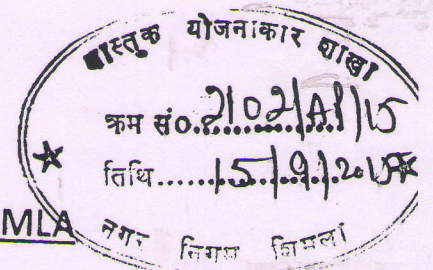 वास्तुक योजनाकार शाखा
क्रम सं०. 2102/AP/15
तिथि...... 15/9/2015
MLA
नगर निगम शिमला